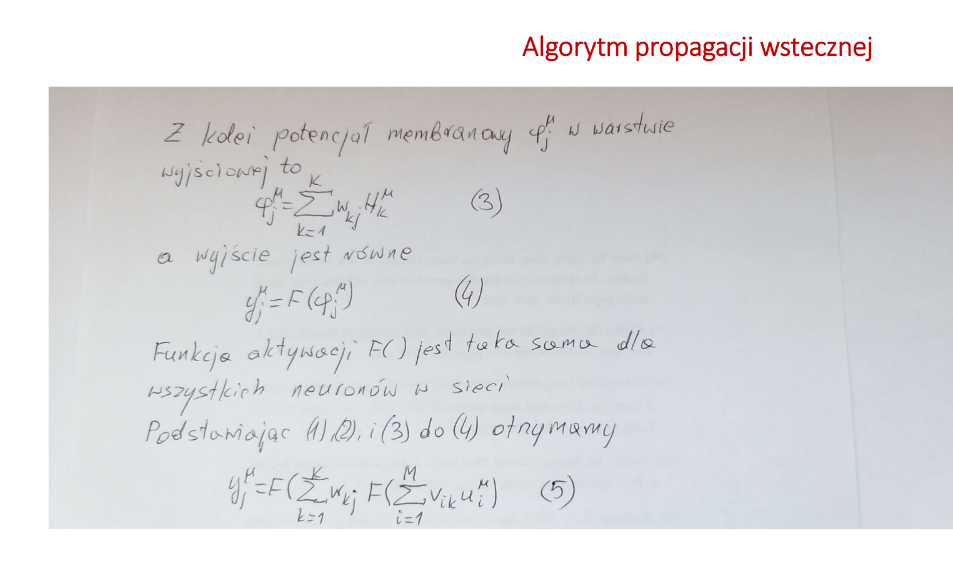 Algorytm propagacji wstecznej
Z kolei potencjał membranowy φ_j^μ w warstwie
wyjściowej to
φ_j^μ = ∑_{k=1}^{K} w_{kj} H_k^μ (3)
a wyjście jest równe
y_j^μ = F(φ_j^μ) (4)
Funkcja aktywacji F() jest taka sama dla
wszystkich neuronów w sieci
Podstawiając (1),(2), i (3) do (4) otrzymamy
y_j^μ = F(∑_{k=1}^{K} w_{kj} F(∑_{i=1}^{M} v_{ik} u_i^μ) (5)